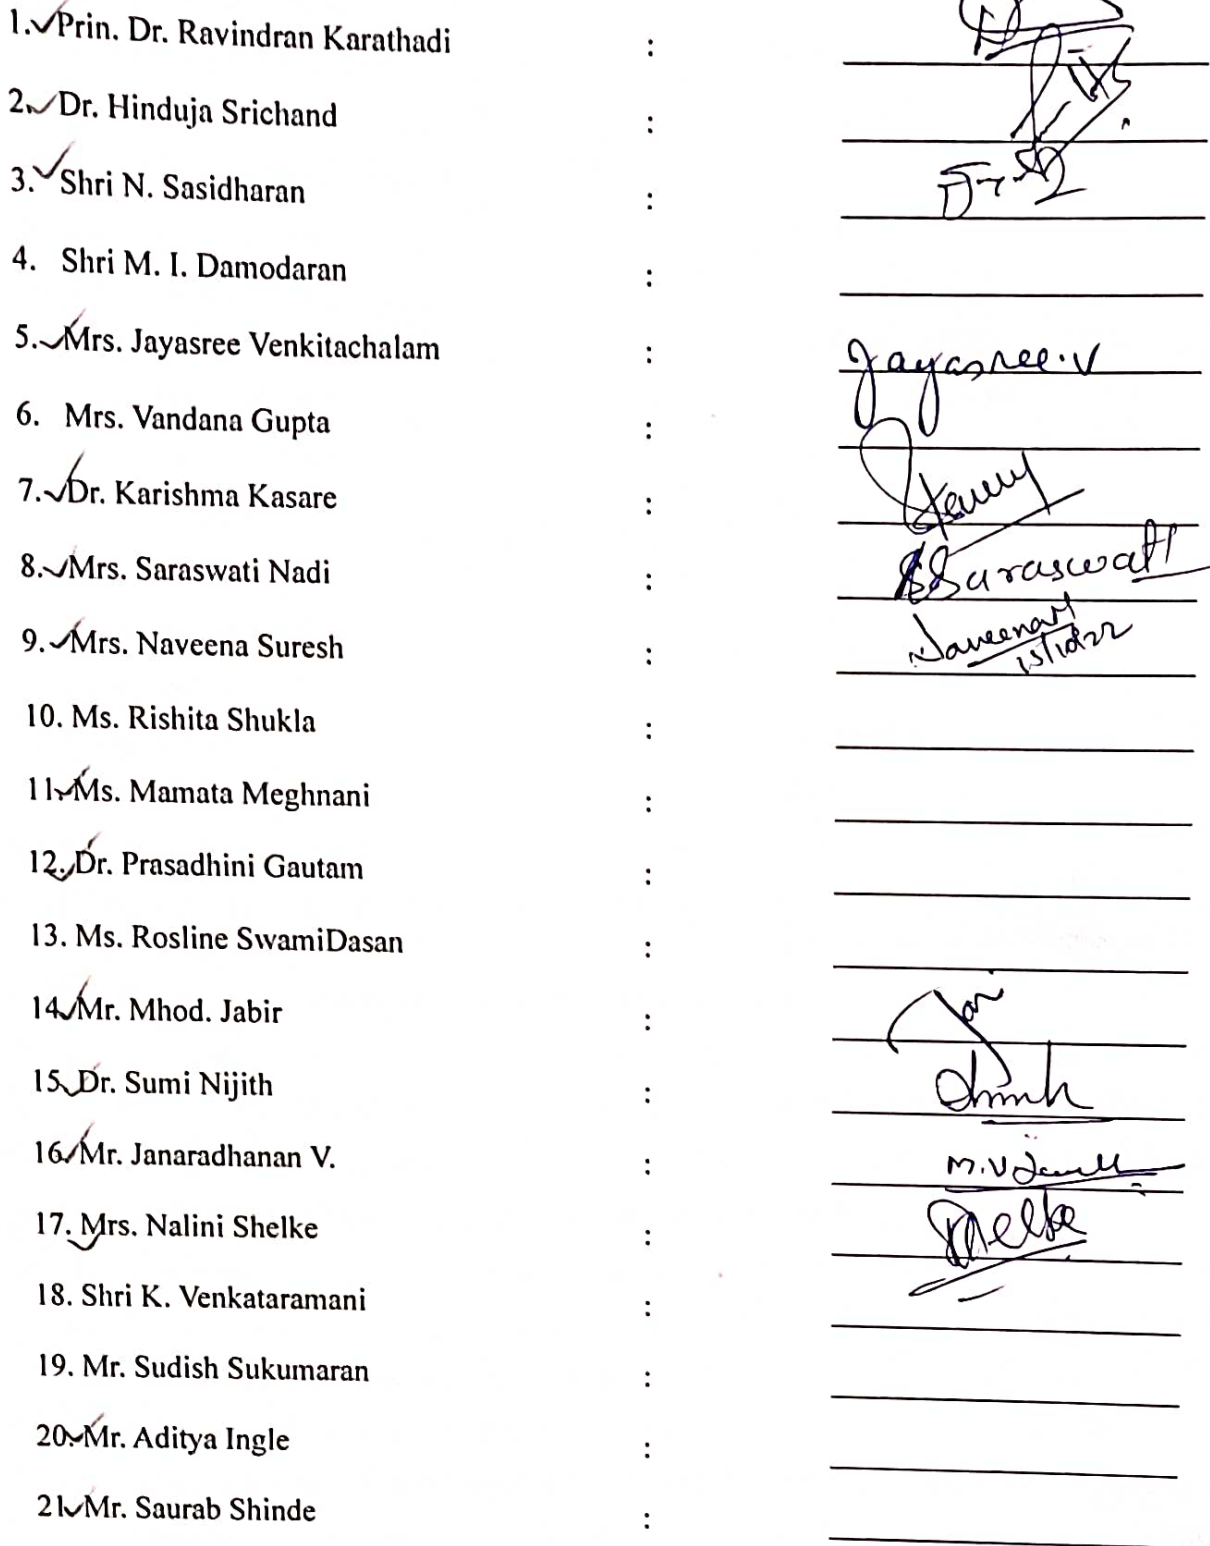 1. Prin. Dr. Ravindran Karathadi :
2. Dr. Hinduja Srichand :
3. Shri N. Sasidharan :
4. Shri M. I. Damodaran :
5. Mrs. Jayasree Venkitachalam : Jayasree.V
6. Mrs. Vandana Gupta :
7. Dr. Karishma Kasare :
8. Mrs. Saraswati Nadi : Saraswati
9. Mrs. Naveena Suresh : Naveena
15/10/22
10. Ms. Rishita Shukla :
11. Ms. Mamata Meghnani :
12. Dr. Prasadhini Gautam :
13. Ms. Rosline SwamiDasan :
14. Mr. Mhod. Jabir :
15. Dr. Sumi Nijith :
16. Mr. Janaradhanan V. : M.V
17. Mrs. Nalini Shelke : Shelke
18. Shri K. Venkataramani :
19. Mr. Sudish Sukumaran :
20. Mr. Aditya Ingle :
21. Mr. Saurab Shinde :